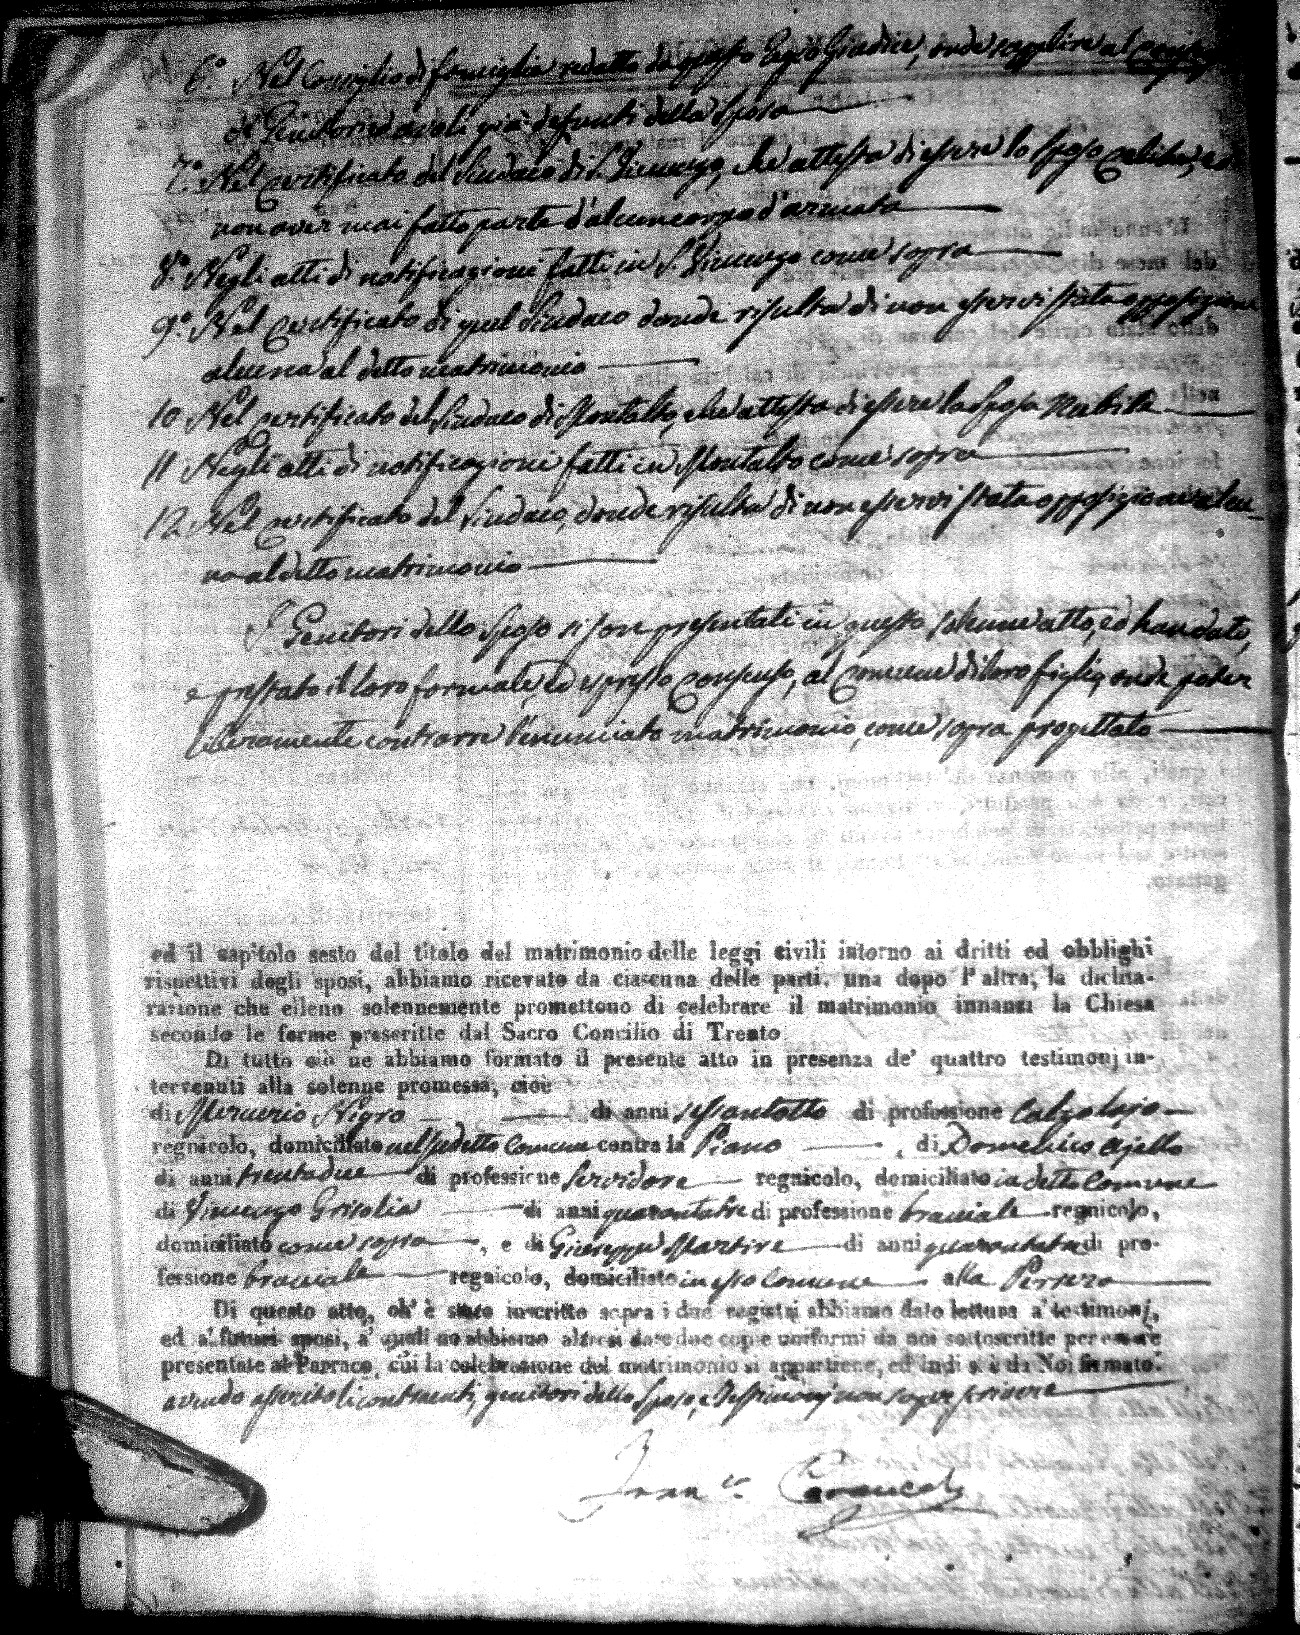 6.° Nel Consiglio di famiglia redatto da questo Regio Giudice, onde supplire al
de' Genitori ed avoli già defunti della Sposa
7.° Nel certificato del Sindaco di S. Vincenzo, che attesta di essere lo Sposo celibe, e
non aver mai fatto parte d'alcun corpo d'armata
8.° Negli atti di notificazioni fatti in S. Vincenzo come sopra
9.° Nel Certificato di quel Sindaco donde risulta di non esservi stata opposizione
alcuna al detto matrimonio
10 Nel certificato del Sindaco di Montalto, che attesta di essere la Sposa Nubile
11 Negli atti di notificazioni fatti in Montalto come sopra
12 Nel certificato del Sindaco, donde risulta di non esservi stata opposizione alcu-
na al detto matrimonio
I Genitori dello Sposo si son presentati in questo solenne atto, ed han dato,
e prestato il loro formale, ed espresso Consenso, al Comune di loro figlio, onde poter
liberamente contrarre l'enunciato matrimonio, come sopra progettato
ed il capitolo sesto del titolo del matrimonio delle leggi civili intorno ai dritti ed obblighi
rispettivi degli sposi, abbiamo ricevuto da ciascuna delle parti, una dopo l'altra, la dichia-
razione che eileno solennemente promettono di celebrare il matrimonio innanzi la Chiesa
secondo le forme prescritte dal Sacro Concilio di Trento
Di tutto ciò ne abbiamo formato il presente atto in presenza de' quattro testimonj in-
tervenuti alla solenne promessa, cioè
di Mercurio Nigro di anni sessantotto di professione Calzolajo
regnicolo, domiciliato nel sudetto Comune contra la Piano, di Domenico Ajello
di anni trentadue di professione Servidore regnicolo, domiciliato in detto Comune
di Vincenzo Grisolia di anni quarantatre di professione bracciale regnicolo,
domiciliato come sopra, e di Giuseppe Martire di anni di pro-
fessione bracciale regnicolo, domiciliato in esso Comune alla
Di questo atto, ch' è stato inscritto sopra i due registri abbiamo dato lettura a' testimonj,
ed a' futuri sposi, a' quali ne abbiamo altresì date due copie uniformi da noi sottoscritte per essere
presentate al Parroco, cui la celebrazione del matrimonio si appartiene, ed indi s' è da Noi firmato.
avendo asserito li contraenti, genitori dello Sposo, e Testimonj non saper scrivere
Fran.co